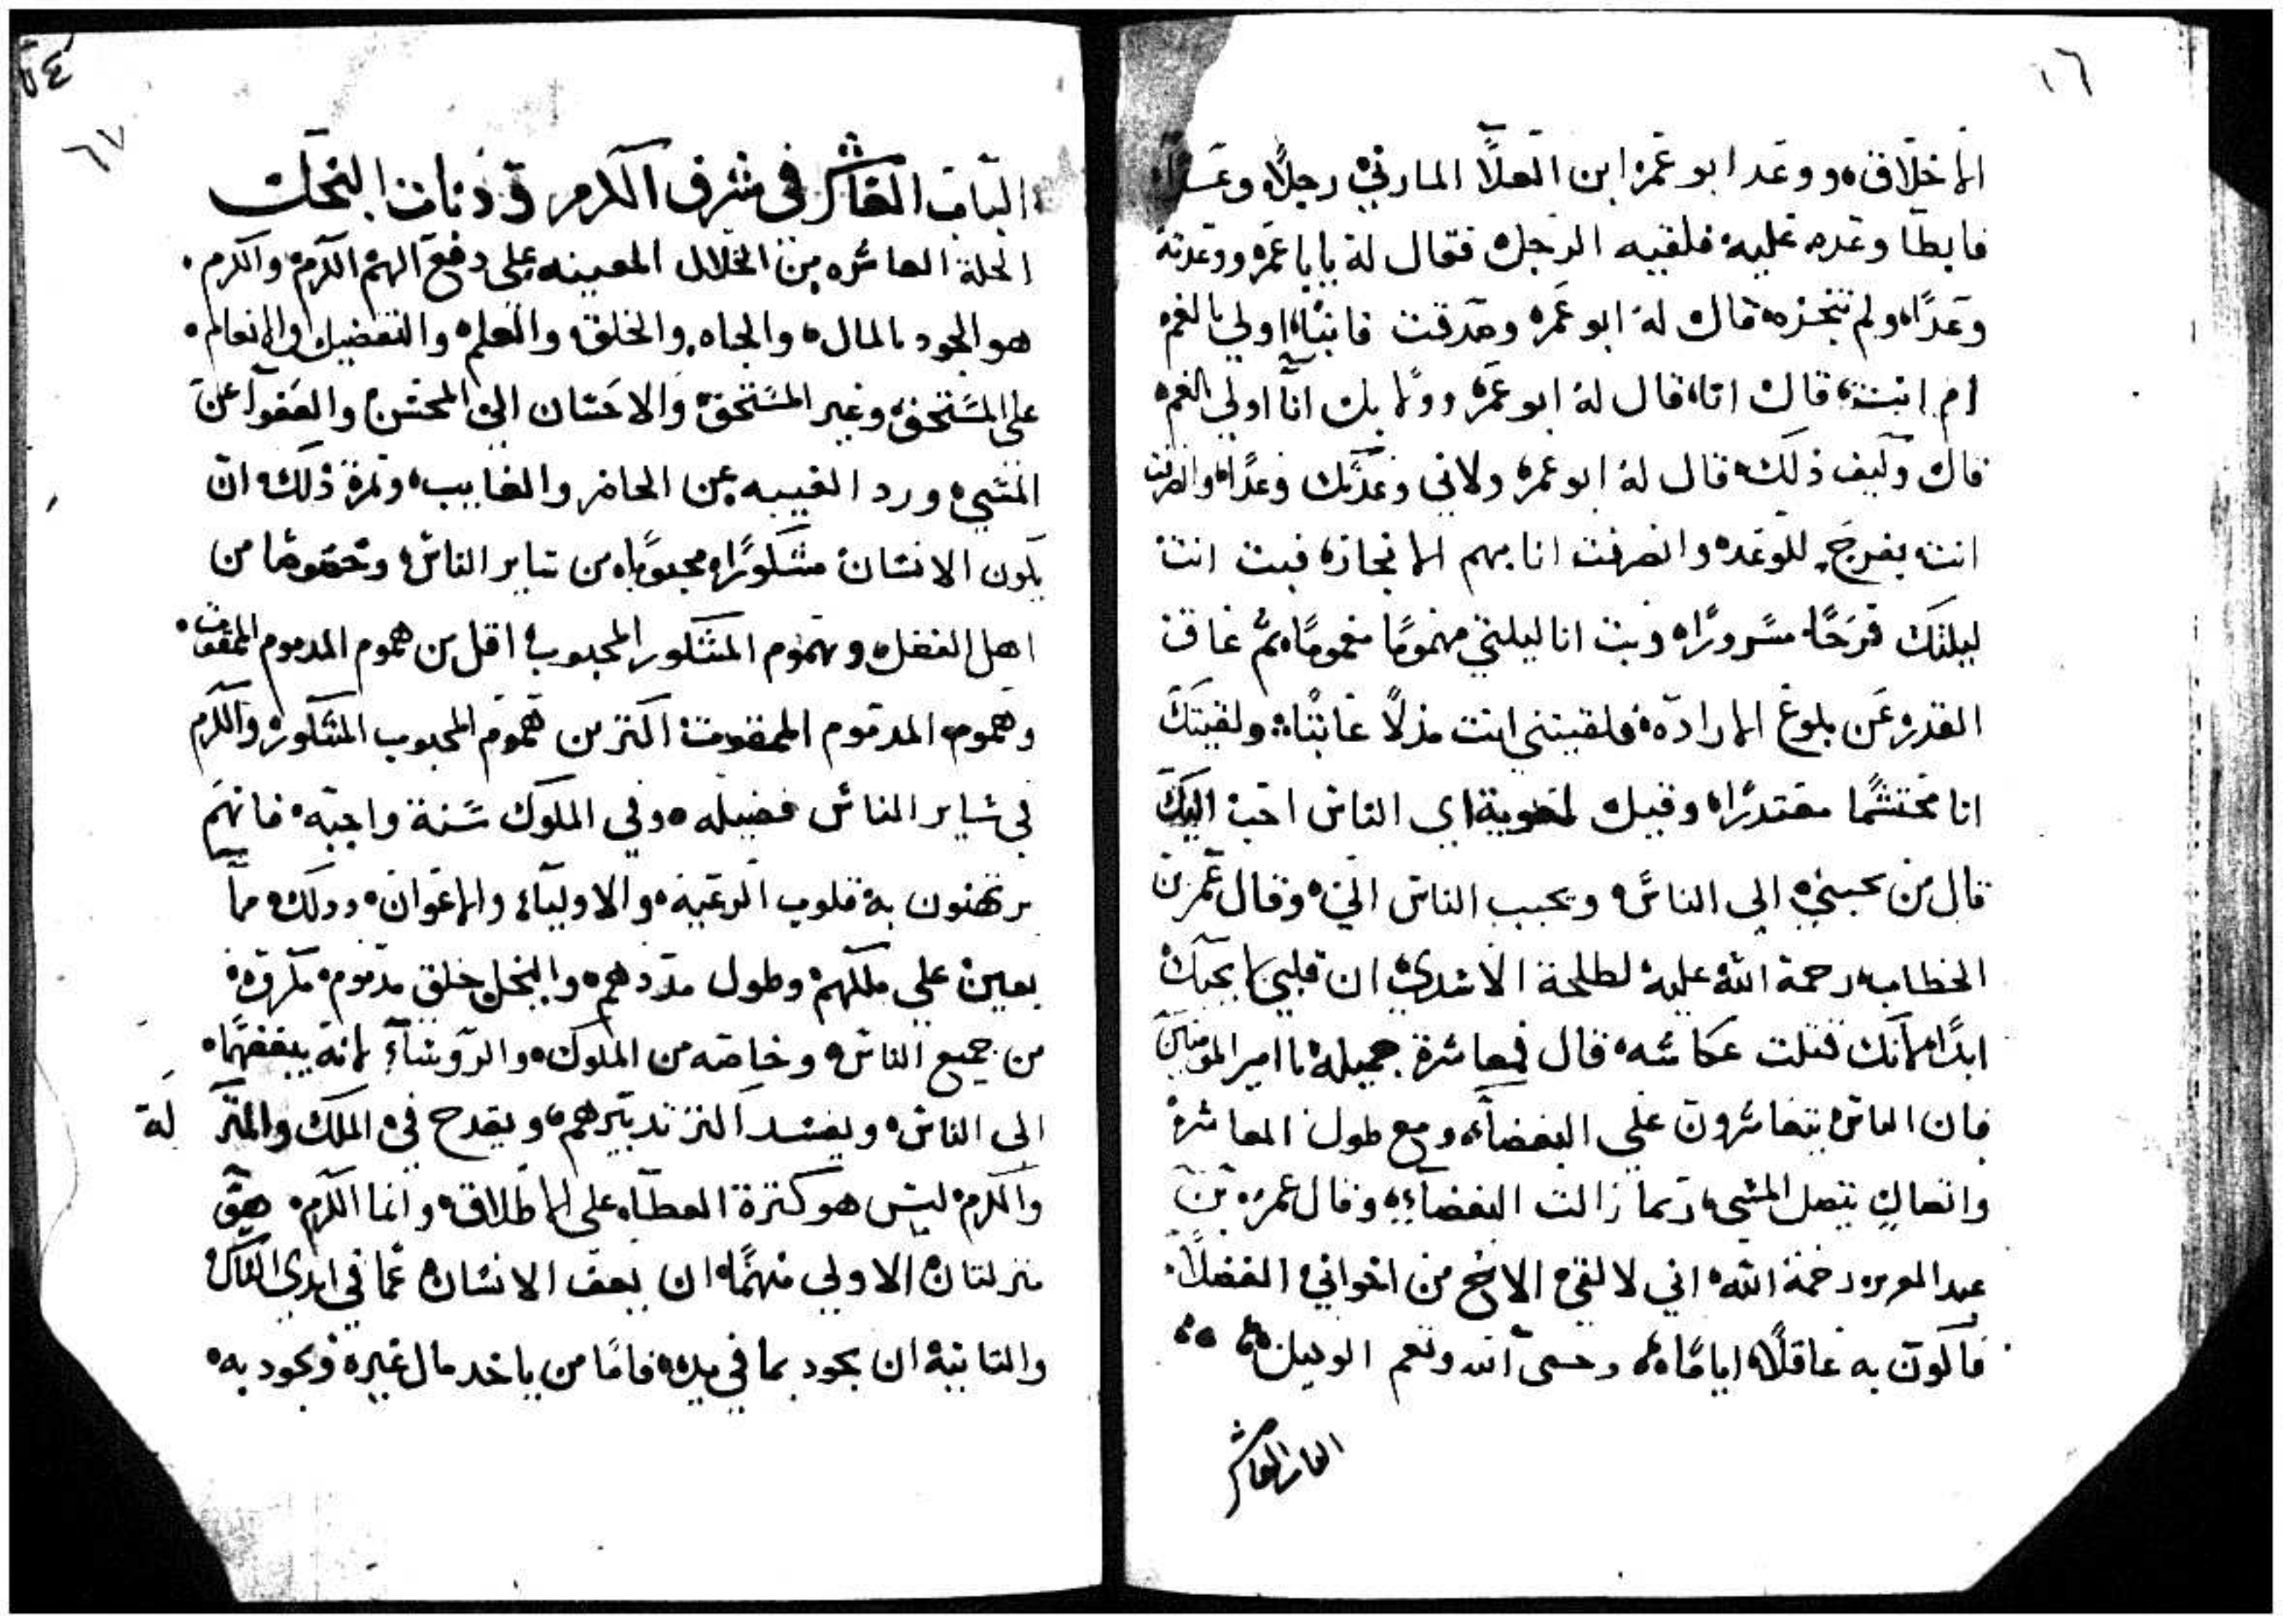 ٦٦
الاخلاق ووعد ابو عمر ابن العلا المازني رجلا وعدًا
فابطا وعده عليه فلقيه الرجل فقال له يابا عمر ووعدته
وعدًا ولم تنجزه قال له ابو عمر وصدقت فاينا اولي بالغم
ام انت قال انا قال له ابو عمر وولا بك انا اولي بالغم
قال وكيف ذلك قال له ابو عمر ولاني وعدتك وعدًا وانصرفت
انت بفرح للوعد وانصرفت انا بهم الانجاز فبت انت
ليلتك فرحًا مسرورًا وبت انا ليلتي مهمومًا مغمومًا ثم عاق
القدر عن بلوغ الاراده فلقيتني انت مذلًا عاتبًا ولقيتك
انا محتشمًا معتذرًا وقيل لمعوية اي الناس احب اليك
قال من يحببني الي الناس ويحبب الناس الي وقال عمر بن
الخطاب رحمة الله عليه لطلحة الاسدي ان قلبي لا يحبك
ابدًا لانك قتلت عكاشه قال فمعاشرة جميله يا امير المومنين
فان الناس يتعاشرون علي البغضاء ومع طول المعاشرة
واتصال المشي ربما زالت البغضاء وقال عمر بن
عبد العزيز رحمة الله اني لالقي الاخ من اخواني الفضلا
فاكون به عاقلًا ايامًا وحسبي الله ونعم الوكيل
الباب العاشر
٥٤
٦٧
الباب العاشر في شرف الكرم ودناة البخل
الخلة العاشره من الخلال المعينه علي دفع الهم الكرم والكرم
هو الجود بالمال والجاه والخلق والعلم والتفضيل والانعام
علي المستحق وغير المستحق والاحسان الي المحسن والعفو عن
المسي ورد الغيبه عن الحاضر والغايب وثمرة ذلك ان
يكون الانسان مشكورًا محبوبًا من ساير الناس وخصوصًا من
اهل الفضل وهموم المشكور المحبوب اقل من هموم المدموم الممقوت
وهموم المدموم الممقوت اكثر من هموم المحبوب المشكور والكرم
في ساير الناس فضيله وفي الملوك سنة واجبه فانهم
يرتهنون به قلوب الرعيه والاوليآء والاعوان وذلك مما
يعين علي ملكهم وطول مددهم والبخل خلق مدموم مكروه
من جميع الناس وخاصه من الملوك والروسآء لانه يبغضهما
الي الناس ويفسد اكثر تدبيرهم ويقدح في الملك والمنز لة
والكرم ليس هو كثرة العطاء علي الاطلاق وانما الكرم هو
منزلتان الاولي منهما ان يعف الانسان عما في ايدي الناس
والثانية ان يجود بما في يده فامًا من ياخد مال غيره ويجود به